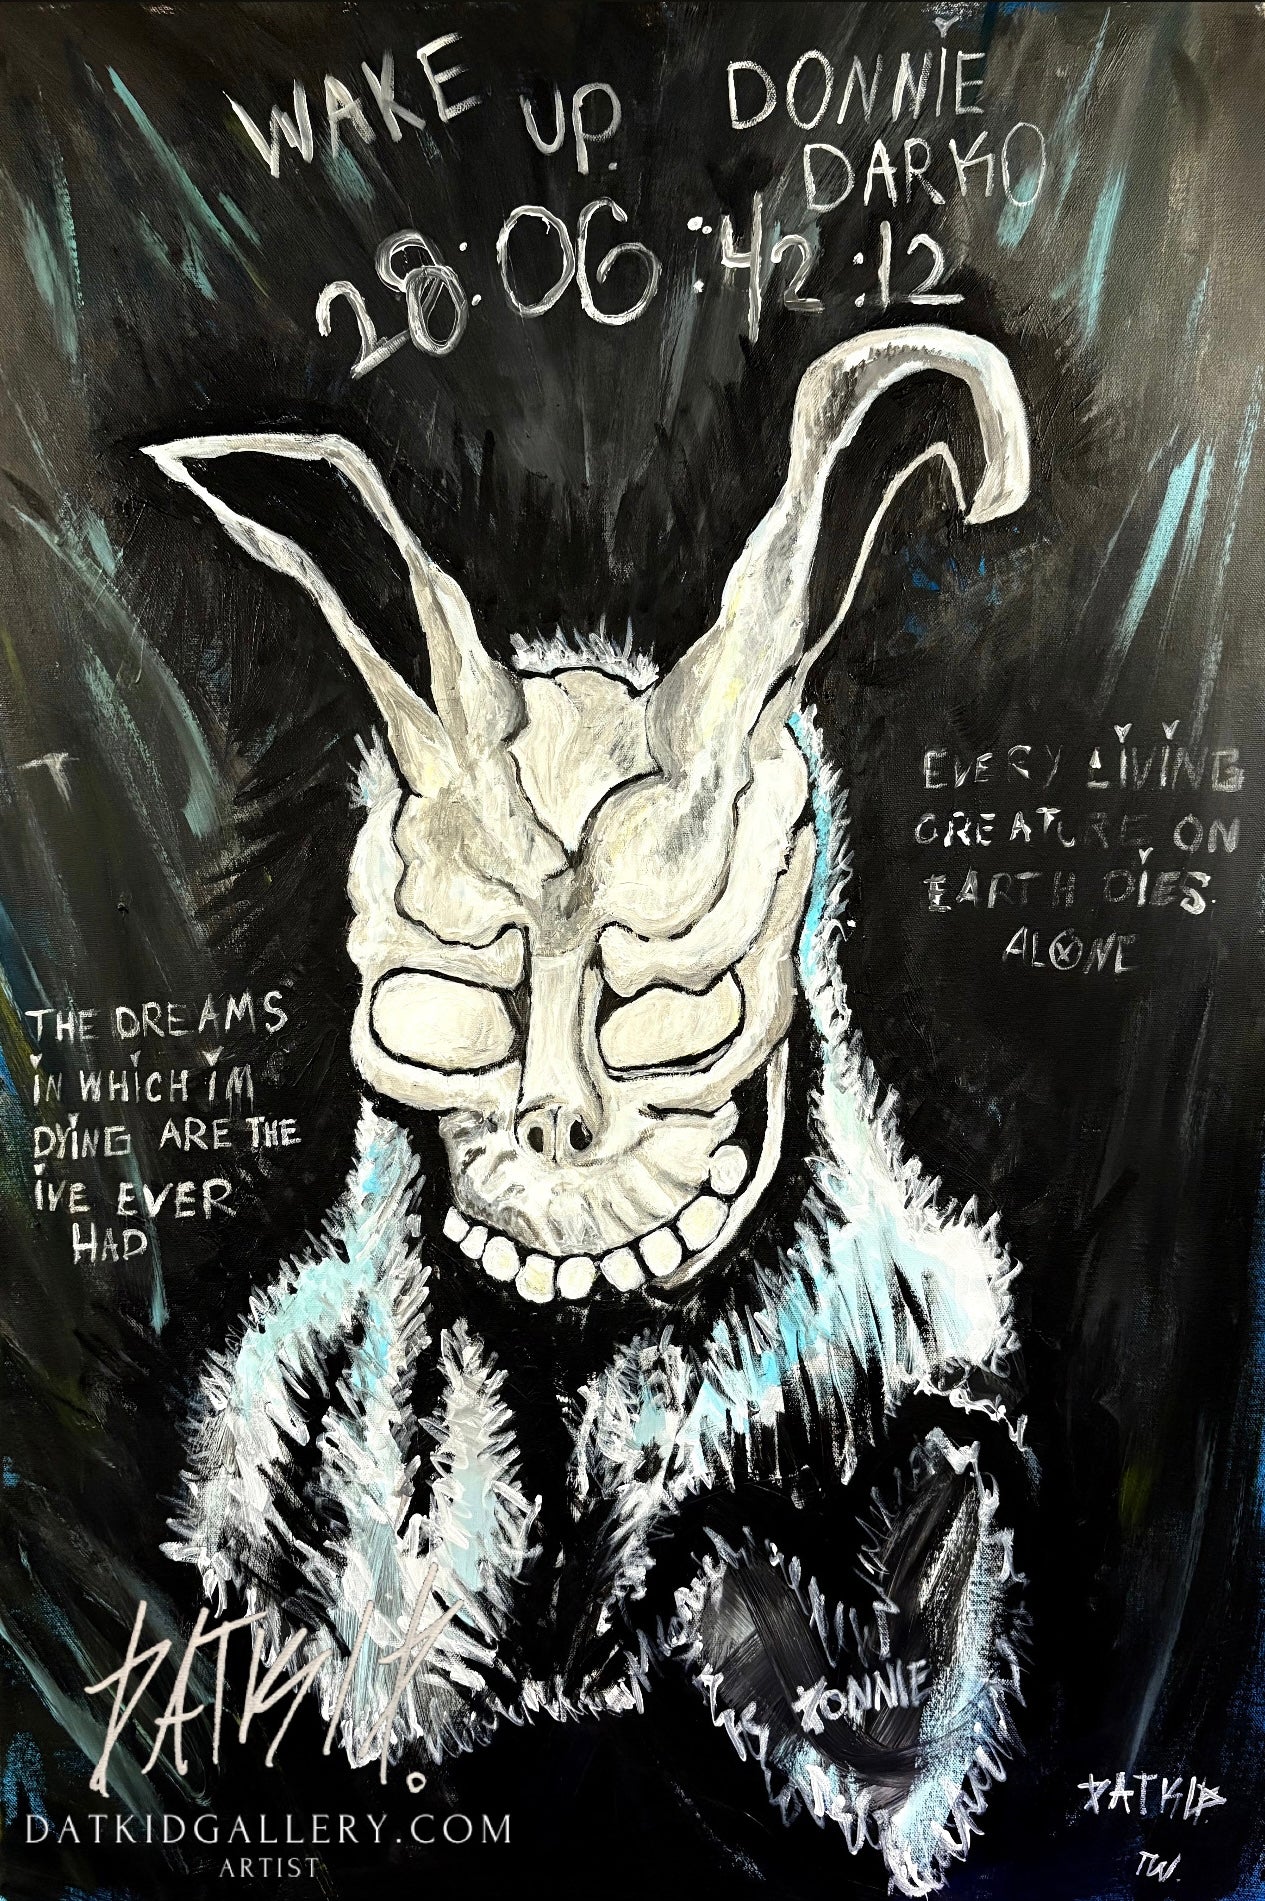 WAKE UP. DONNIE
DARKO
28:06:42:12
EVERY LIVING
CREATURE ON
EARTH DIES.
ALONE
THE DREAMS
iN WHiCH iM
DYING ARE THE
iVE EVER
HAD
ZONNIE
DATKID.
DATKIDGALLERY.COM
ARTIST
DATKID.
TW.